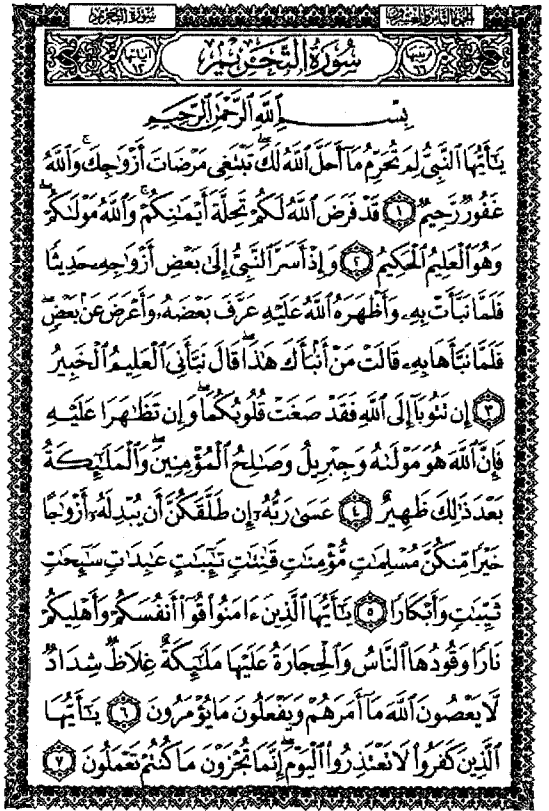 سُورَةُ التَّحْرِيمِ الجُزْءُ الثَّامِنُ وَالعِشْرُونَ
آيَاتُهَا ١٢ سُورَةُ التَّحْرِيمِ ترتيبها ٦٦
بِسْمِ ٱللَّهِ ٱلرَّحْمَٰنِ ٱلرَّحِيمِ
يَٰٓأَيُّهَا ٱلنَّبِىُّ لِمَ تُحَرِّمُ مَآ أَحَلَّ ٱللَّهُ لَكَ ۖ تَبْتَغِى مَرْضَاتَ أَزْوَٰجِكَ ۚ وَٱللَّهُ
غَفُورٌ رَّحِيمٌ ١ قَدْ فَرَضَ ٱللَّهُ لَكُمْ تَحِلَّةَ أَيْمَٰنِكُمْ ۚ وَٱللَّهُ مَوْلَىٰكُمْ ۖ
وَهُوَ ٱلْعَلِيمُ ٱلْحَكِيمُ ٢ وَإِذْ أَسَرَّ ٱلنَّبِىُّ إِلَىٰ بَعْضِ أَزْوَٰجِهِۦ حَدِيثًا
فَلَمَّا نَبَّأَتْ بِهِۦ وَأَظْهَرَهُ ٱللَّهُ عَلَيْهِ عَرَّفَ بَعْضَهُۥ وَأَعْرَضَ عَنۢ بَعْضٍ ۖ
فَلَمَّا نَبَّأَهَا بِهِۦ قَالَتْ مَنْ أَنۢبَأَكَ هَٰذَا ۖ قَالَ نَبَّأَنِىَ ٱلْعَلِيمُ ٱلْخَبِيرُ
٣ إِن تَتُوبَآ إِلَى ٱللَّهِ فَقَدْ صَغَتْ قُلُوبُكُمَا ۖ وَإِن تَظَٰهَرَا عَلَيْهِ
فَإِنَّ ٱللَّهَ هُوَ مَوْلَىٰهُ وَجِبْرِيلُ وَصَٰلِحُ ٱلْمُؤْمِنِينَ ۖ وَٱلْمَلَٰٓئِكَةُ
بَعْدَ ذَٰلِكَ ظَهِيرٌ ٤ عَسَىٰ رَبُّهُۥٓ إِن طَلَّقَكُنَّ أَن يُبْدِلَهُۥٓ أَزْوَٰجًا
خَيْرًا مِّنكُنَّ مُسْلِمَٰتٍ مُّؤْمِنَٰتٍ قَٰنِتَٰتٍ تَٰٓئِبَٰتٍ عَٰبِدَٰتٍ سَٰٓئِحَٰتٍ
ثَيِّبَٰتٍ وَأَبْكَارًا ٥ يَٰٓأَيُّهَا ٱلَّذِينَ ءَامَنُوا۟ قُوٓا۟ أَنفُسَكُمْ وَأَهْلِيكُمْ
نَارًا وَقُودُهَا ٱلنَّاسُ وَٱلْحِجَارَةُ عَلَيْهَا مَلَٰٓئِكَةٌ غِلَاظٌ شِدَادٌ
لَّا يَعْصُونَ ٱللَّهَ مَآ أَمَرَهُمْ وَيَفْعَلُونَ مَا يُؤْمَرُونَ ٦ يَٰٓأَيُّهَا
ٱلَّذِينَ كَفَرُوا۟ لَا تَعْتَذِرُوا۟ ٱلْيَوْمَ ۖ إِنَّمَا تُجْزَوْنَ مَا كُنتُمْ تَعْمَلُونَ ٧